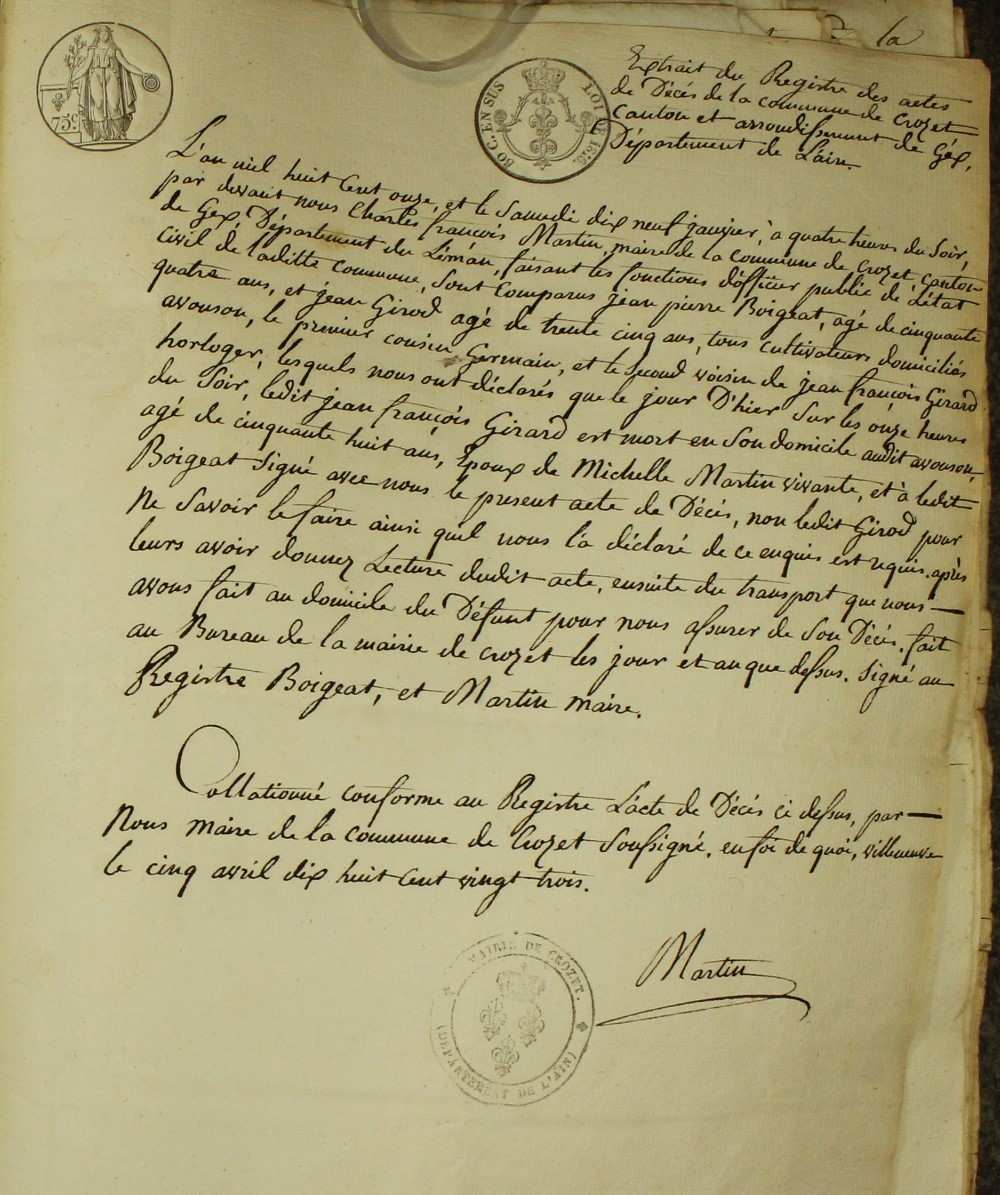 la
75c
50 C. EN SUS
LOI DE 1816
Extrait du Registre des actes
de Décés de la commune de Crozet
Canton et arrondissement de Géx,
Département de L'ain.
L'an mil huit Cent onze, et le Samedi dix neuf janvier, à quatre heures du Soir,
par devant nous Charles françois Martin, maire de la Commune de Crozet, Canton
de Gex, Département du Léman, faisant les fonctions d'officier public de L'état
civil de laditte Commune, Sont Comparus jean pierre Boigeat, agé de cinquante
quatre ans, et jean Girod agé de trente cinq ans, tous cultivateurs domiciliés
avouson, le premier cousin Germain, et le second voisin de jean françois Girard
horloger, lesquels nous ont déclarés que le jour D'hier Sur les onze heures
du Soir, ledit jean françois Girard est mort en Son domicile audit avouson,
agé de cinquante huit ans, Epoux de Michelle Martin vivante, et à ledit
Boigeat Signé avec nous le present acte de Décés, non ledit Girod pour
Ne Savoir le faire ainsi quil nous l'a déclaré de ce enquis est requis. après
leurs avoir donnez Lecture dudit acte, ensuite du transport que nous —
avons fait au domicile du Défunt pour nous assurer de Son Décés. fait
au Bureau de la mairie de Crozet les jour et an que dessus. Signé au
Registre Boigeat, et Martin maire.
Collationné conforme au Registre L'acte de Décés ci dessus, par —
Nous Maire de la Commune de Crozet Soussigné. en foi de quoi, villeneuve
le cinq avril dix huit Cent vingt trois.
Martin
MAIRIE DE CROZET.
(DÉPARTEMENT DE L'AIN)